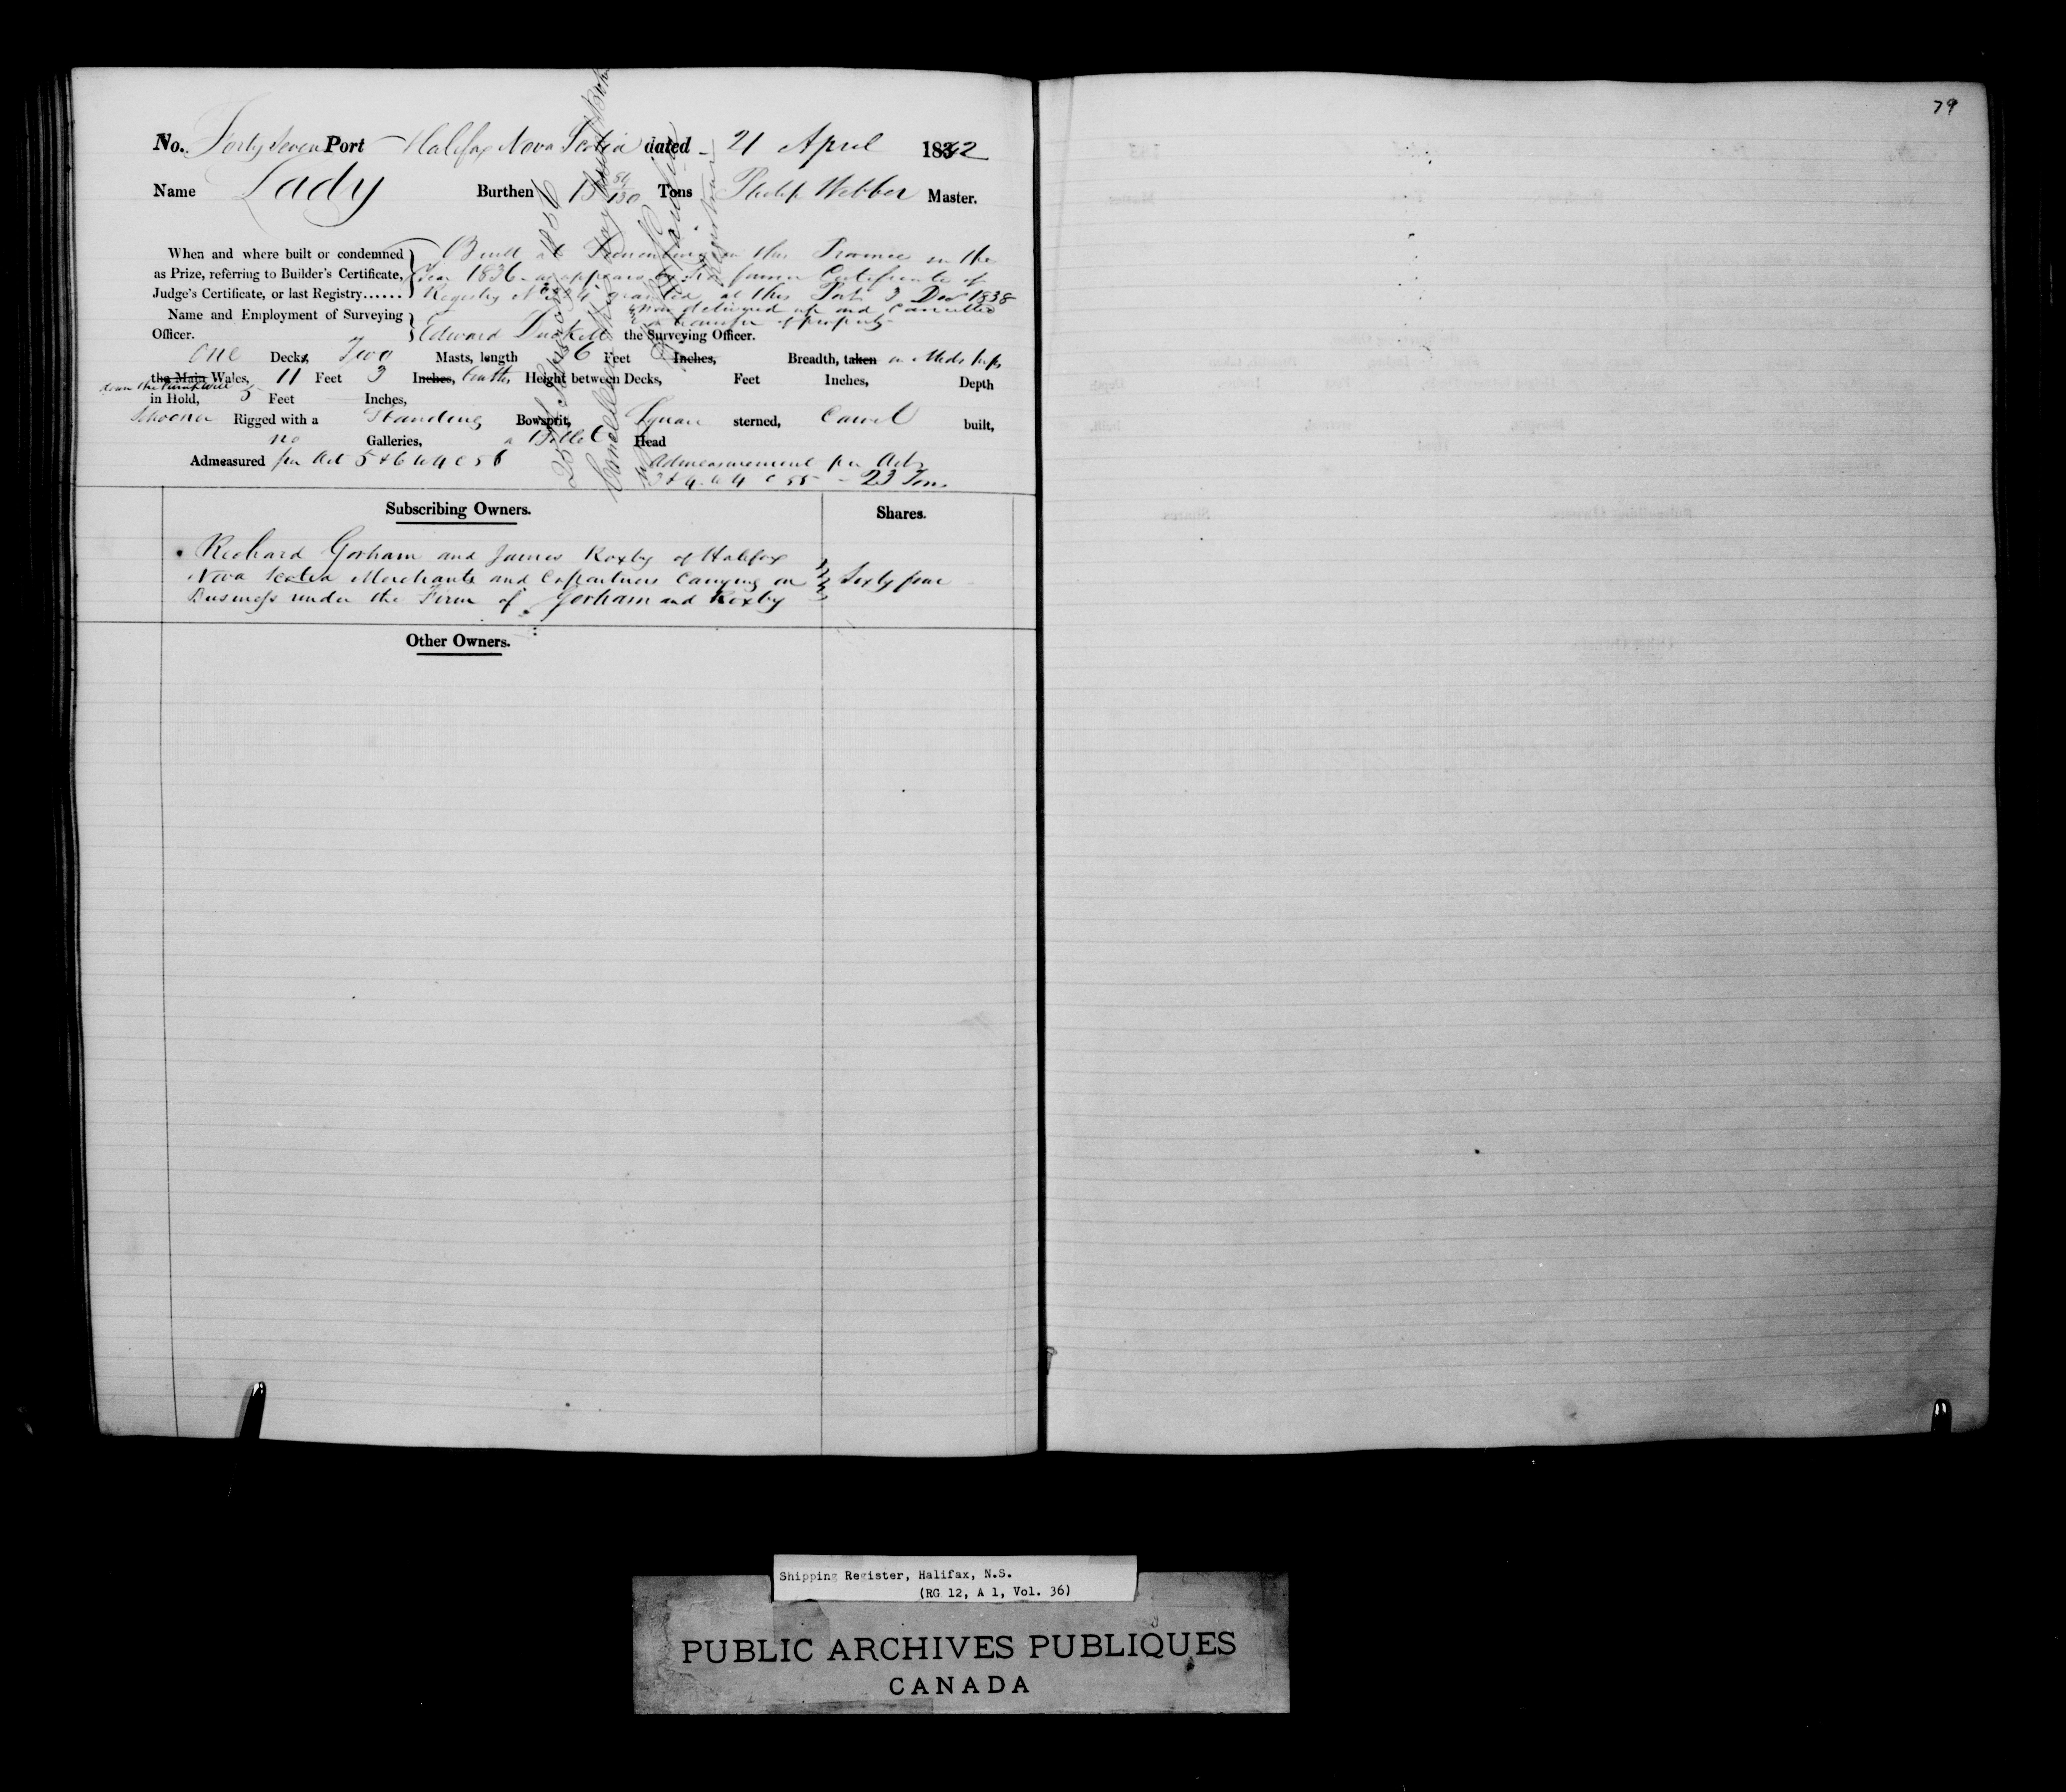 79
No. Forty Seven Port Halifax Nova Scotia dated - 21 April 1842
Name Lady Burthen Tons Philip Webber Master.
When and where built or condemned as Prize, referring to Builder's Certificate, Judge's Certificate, or last Registry......
Built at in this Province in the
Year 1836 - as appears by former Certificate of
Registry No granted at this Port 3 Dec 1838
now delivered up and Cancelled
transfer of property
Name and Employment of Surveying Officer.
Edward the Surveying Officer.
One Decks, Two Masts, length 6 Feet Inches, Breadth, taken in Midships
the Main Wales, 11 Feet 3 Inches, tenths, Height between Decks, Feet Inches, Depth
in Hold, 5 Feet Inches,
Schooner Rigged with a Standing Bowsprit, Square sterned, Carvel built,
no Galleries, a Billet Head
Admeasured per Act 5 & 6 W 4 C 56
Admeasurement per Act
3 & 4 W 4 C 55 - 23 Tons
Subscribing Owners. Shares.
Richard Gorham and James Roxby of Halifax
Nova Scotia Merchants and Copartners Carrying on Sixty four
Business under the Firm of Gorham and Roxby
Other Owners.
Shipping Register, Halifax, N.S.
(RG 12, A 1, Vol. 36)
PUBLIC ARCHIVES PUBLIQUES
CANADA